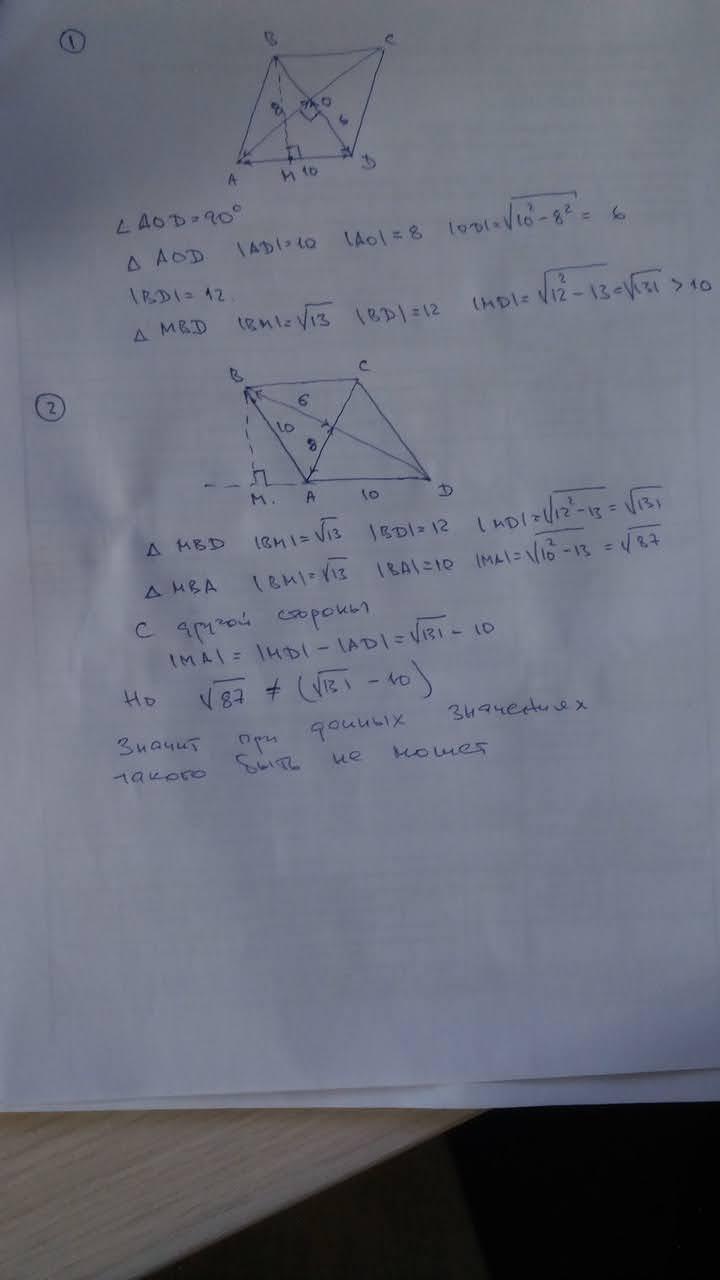 1
B C
8 O 6
A M 10 D
∠AOD=90°
△ AOD |AD|=10 |AO|=8 |OD|=√(10²-8²) = 6
|BD|=12.
△ MBD |BM|=√13 |BD|=12 |MD|=√(12²-13)=√131 >10
2
B C
6
10
8
M. A 10 D
△ MBD |BM|=√13 |BD|=12 |MD|=√(12²-13)=√131
△ MBA |BM|=√13 |BA|=10 |MA|=√(10²-13) = √87
С другой стороны
|MA| = |MD| - |AD| = √131 - 10
Но √87 ≠ (√131 - 10)
Значит при данных значениях
такого быть не может